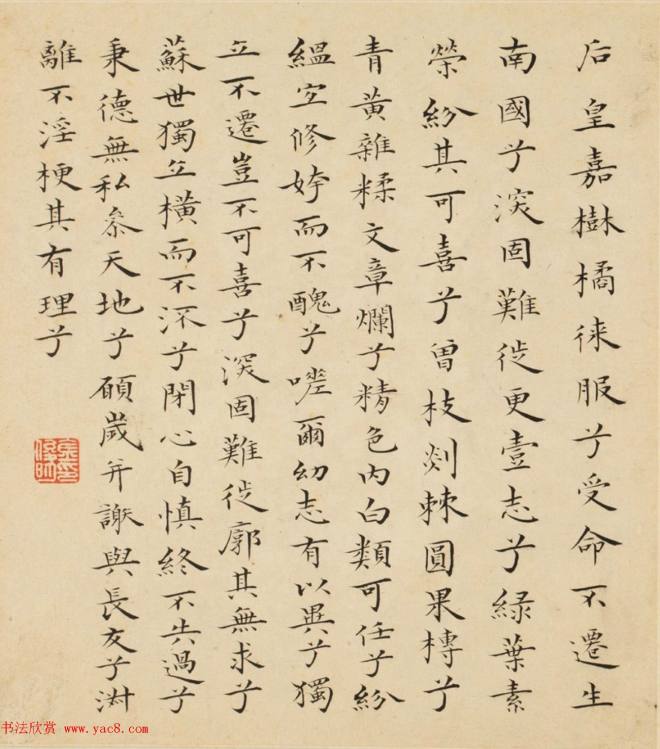 后皇嘉樹橘徠服兮受命不遷生
南國兮深固難徙更壹志兮緑葉素
榮紛其可喜兮曾枝剡棘圓果槫兮
青黃雜糅文章爛兮精色内白類可任兮紛
緼宜修姱而不醜兮嗟爾幼志有以異兮獨
立不遷豈不可喜兮深固難徙廓其無求兮
蘇世獨立橫而不流兮閉心自慎終不失過兮
秉德無私叅天地兮願歲并謝與長友兮淑
離不淫梗其有理兮
书法欣赏 www.yac8.com